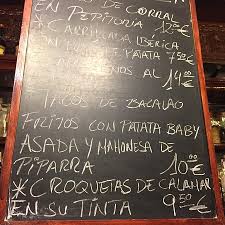 DE CORRAL
EN PEPITORIA 12€
* CARRILLADA IBÉRICA
PATATA 7,50€
AL 14,00€
TACOS DE BACALAO
FRITOS CON PATATA BABY
ASADA Y MAHONESA DE
PIPARRA 10,00€
* CROQUETAS DE CALAMAR
EN SU TINTA 9,50€